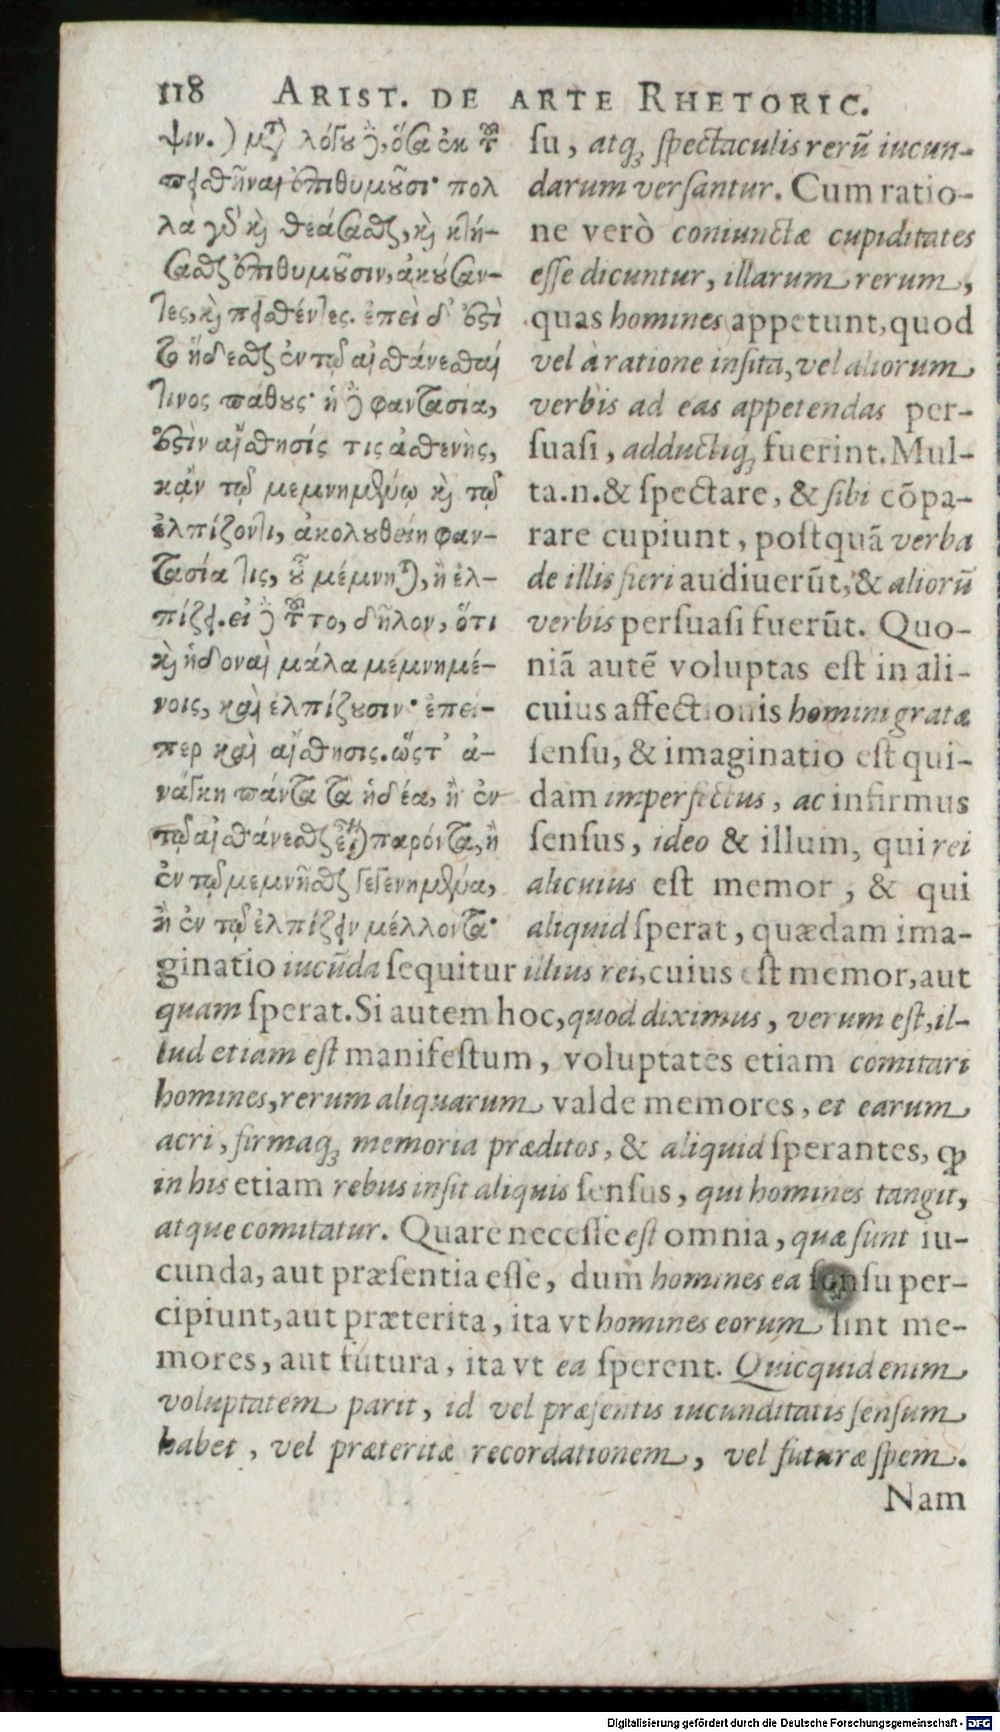 118 ARIST. DE ARTE RHETORIC.
ψιν.) μτ λόγου ϳ, ὅσα ἐκ τȣ͂
πεισθῆναι ἐπιθυμοῦσι· πολ
λὰ γὸ κὶ θεάσασθαι, κὶ κτή-
σασθαι ἐπιθυμοῦσιν, ἀκούσαν-
τες, κὶ πεισθέντες. ἐπεὶ δ' ἐστὶ
τὸ ἥδεσθαι ἐν τῷ αἰσθάνεσθαί
τινος πάθους· ἡ ϳ φαντασία,
ἐστὶν αἴσθησίς τις ἀσθενὴς,
κἀν τῷ μεμνημένῳ κὶ τῷ
ἐλπίζοντι, ἀκολουθείη φαν-
τασία τις, οὗ μέμνηται, ἢ ἐλ-
πίζει. εἰ ϳ τȣ͂το, δῆλον, ὅτι
κὶ ἡδοναὶ μάλα μεμνημέ-
νοις, καὶ ἐλπίζουσιν· ἐπεί-
περ καὶ αἴσθησις. ὥστ' ἀ-
νάγκη πάντα τὰ ἡδέα, ἢ ἐν
τῷ αἰσθάνεσθαι εἶναι παρόντα, ἢ
ἐν τῷ μεμνῆσθαι γεγενημένα,
ἢ ἐν τῷ ἐλπίζειν μέλλοντα·
su, atq; spectaculis rerũ iucun-
darum versantur. Cum ratio-
ne verò coniunctæ cupiditates
esse dicuntur, illarum rerum,
quas homines appetunt, quod
vel à ratione insita, vel aliorum
verbis ad eas appetendas per-
suasi, adductiq; fuerint. Mul-
ta.n.& spectare, & sibi cõpa-
rare cupiunt, postquã verba
de illis fieri audiuerũt, & aliorũ
verbis persuasi fuerũt. Quo-
niã autẽ voluptas est in ali-
cuius affectionis homini gratæ
sensu, & imaginatio est qui-
dam imperfectus, ac infirmus
sensus, ideo & illum, qui rei
alicuius est memor, & qui
aliquid sperat, quædam ima-
ginatio iucũda sequitur illius rei, cuius est memor, aut
quam sperat. Si autem hoc, quod diximus, verum est, il-
lud etiam est manifestum, voluptates etiam comitari
homines, rerum aliquarum valde memores, et earum
acri, firmaq; memoria præditos, & aliquid sperantes, ꝙ
in his etiam rebus insit aliquis sensus, qui homines tangit,
atque comitatur. Quare necesse est omnia, quæ sunt iu-
cunda, aut præsentia esse, dum homines ea sensu per-
cipiunt, aut præterita, ita vt homines eorum sint me-
mores, aut futura, ita vt ea sperent. Quicquid enim
voluptatem parit, id vel præsentis iucunditatis sensum
habet, vel præteritæ recordationem, vel futuræ spem.
Nam
Digitalisierung gefördert durch die Deutsche Forschungsgemeinschaft - DFG